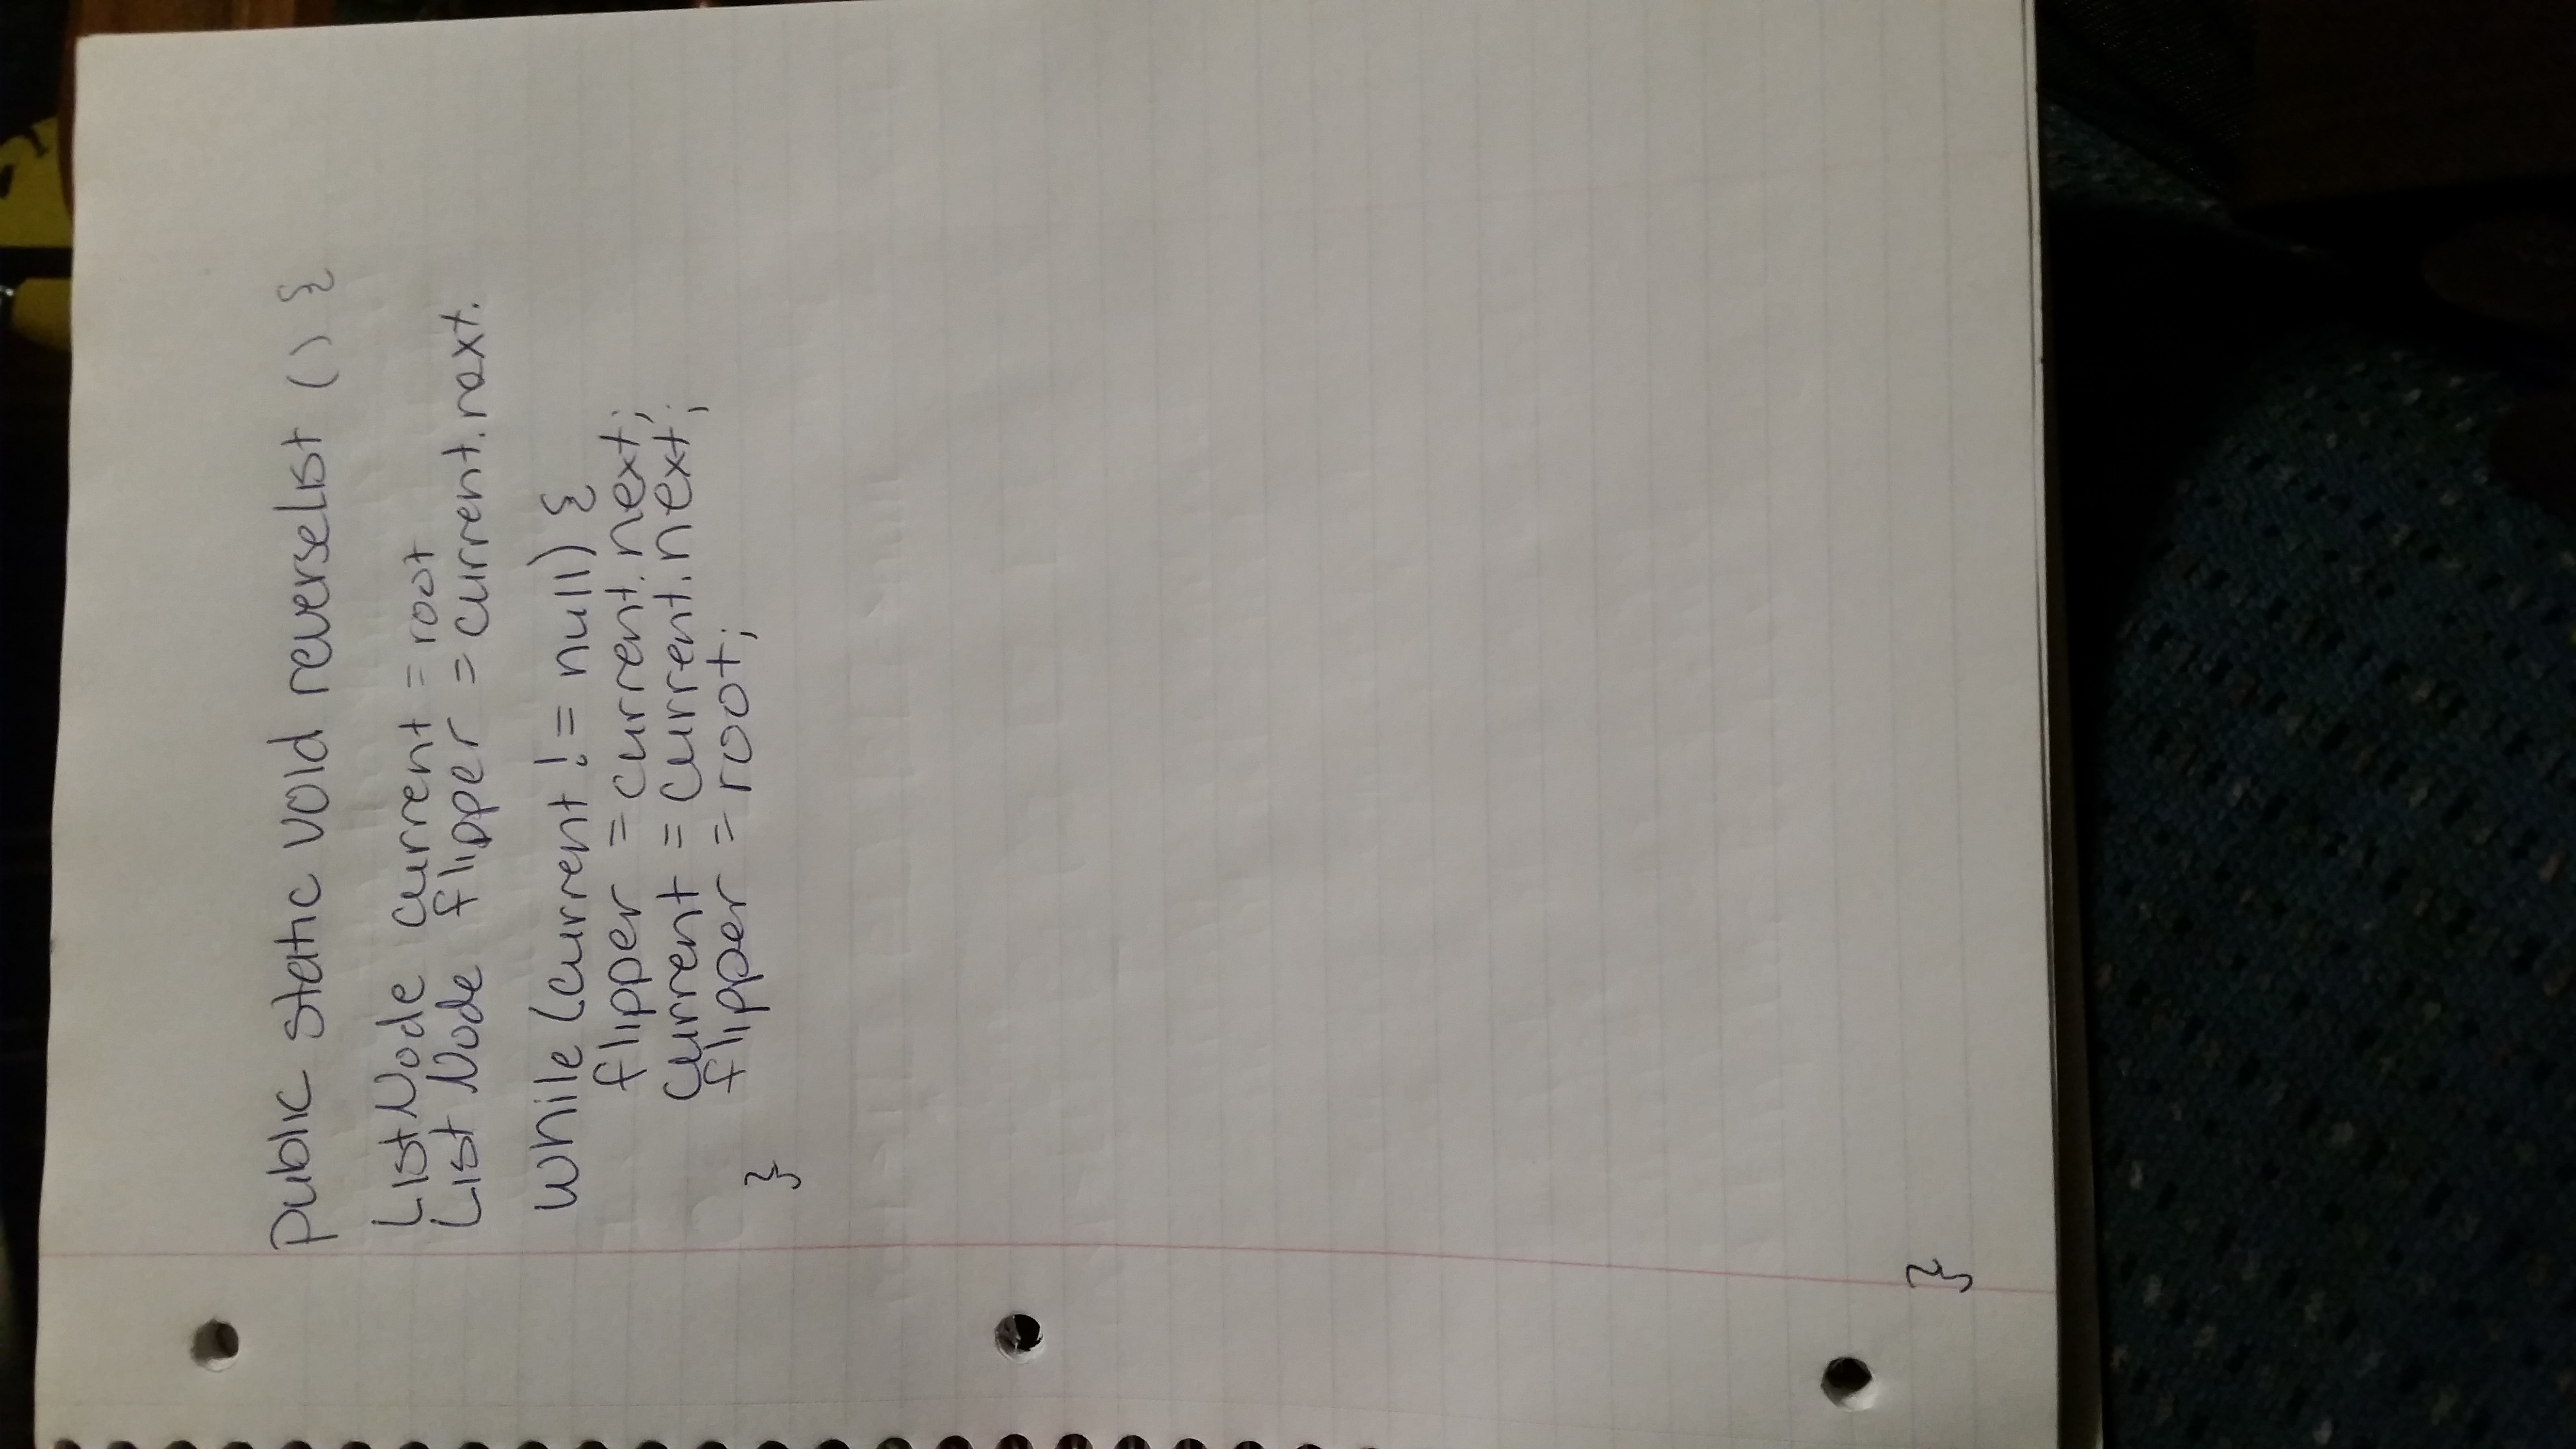 public static void reverselist () {
ListNode current = root
List Node flipper = current.next.
while (current != null) {
flipper = current.next;
current = current.next;
flipper = root;
}
}